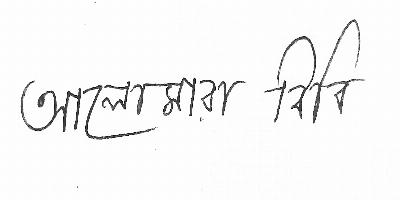 আলোমারা বিবি